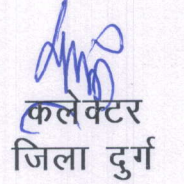 कलेक्टर
जिला दुर्ग